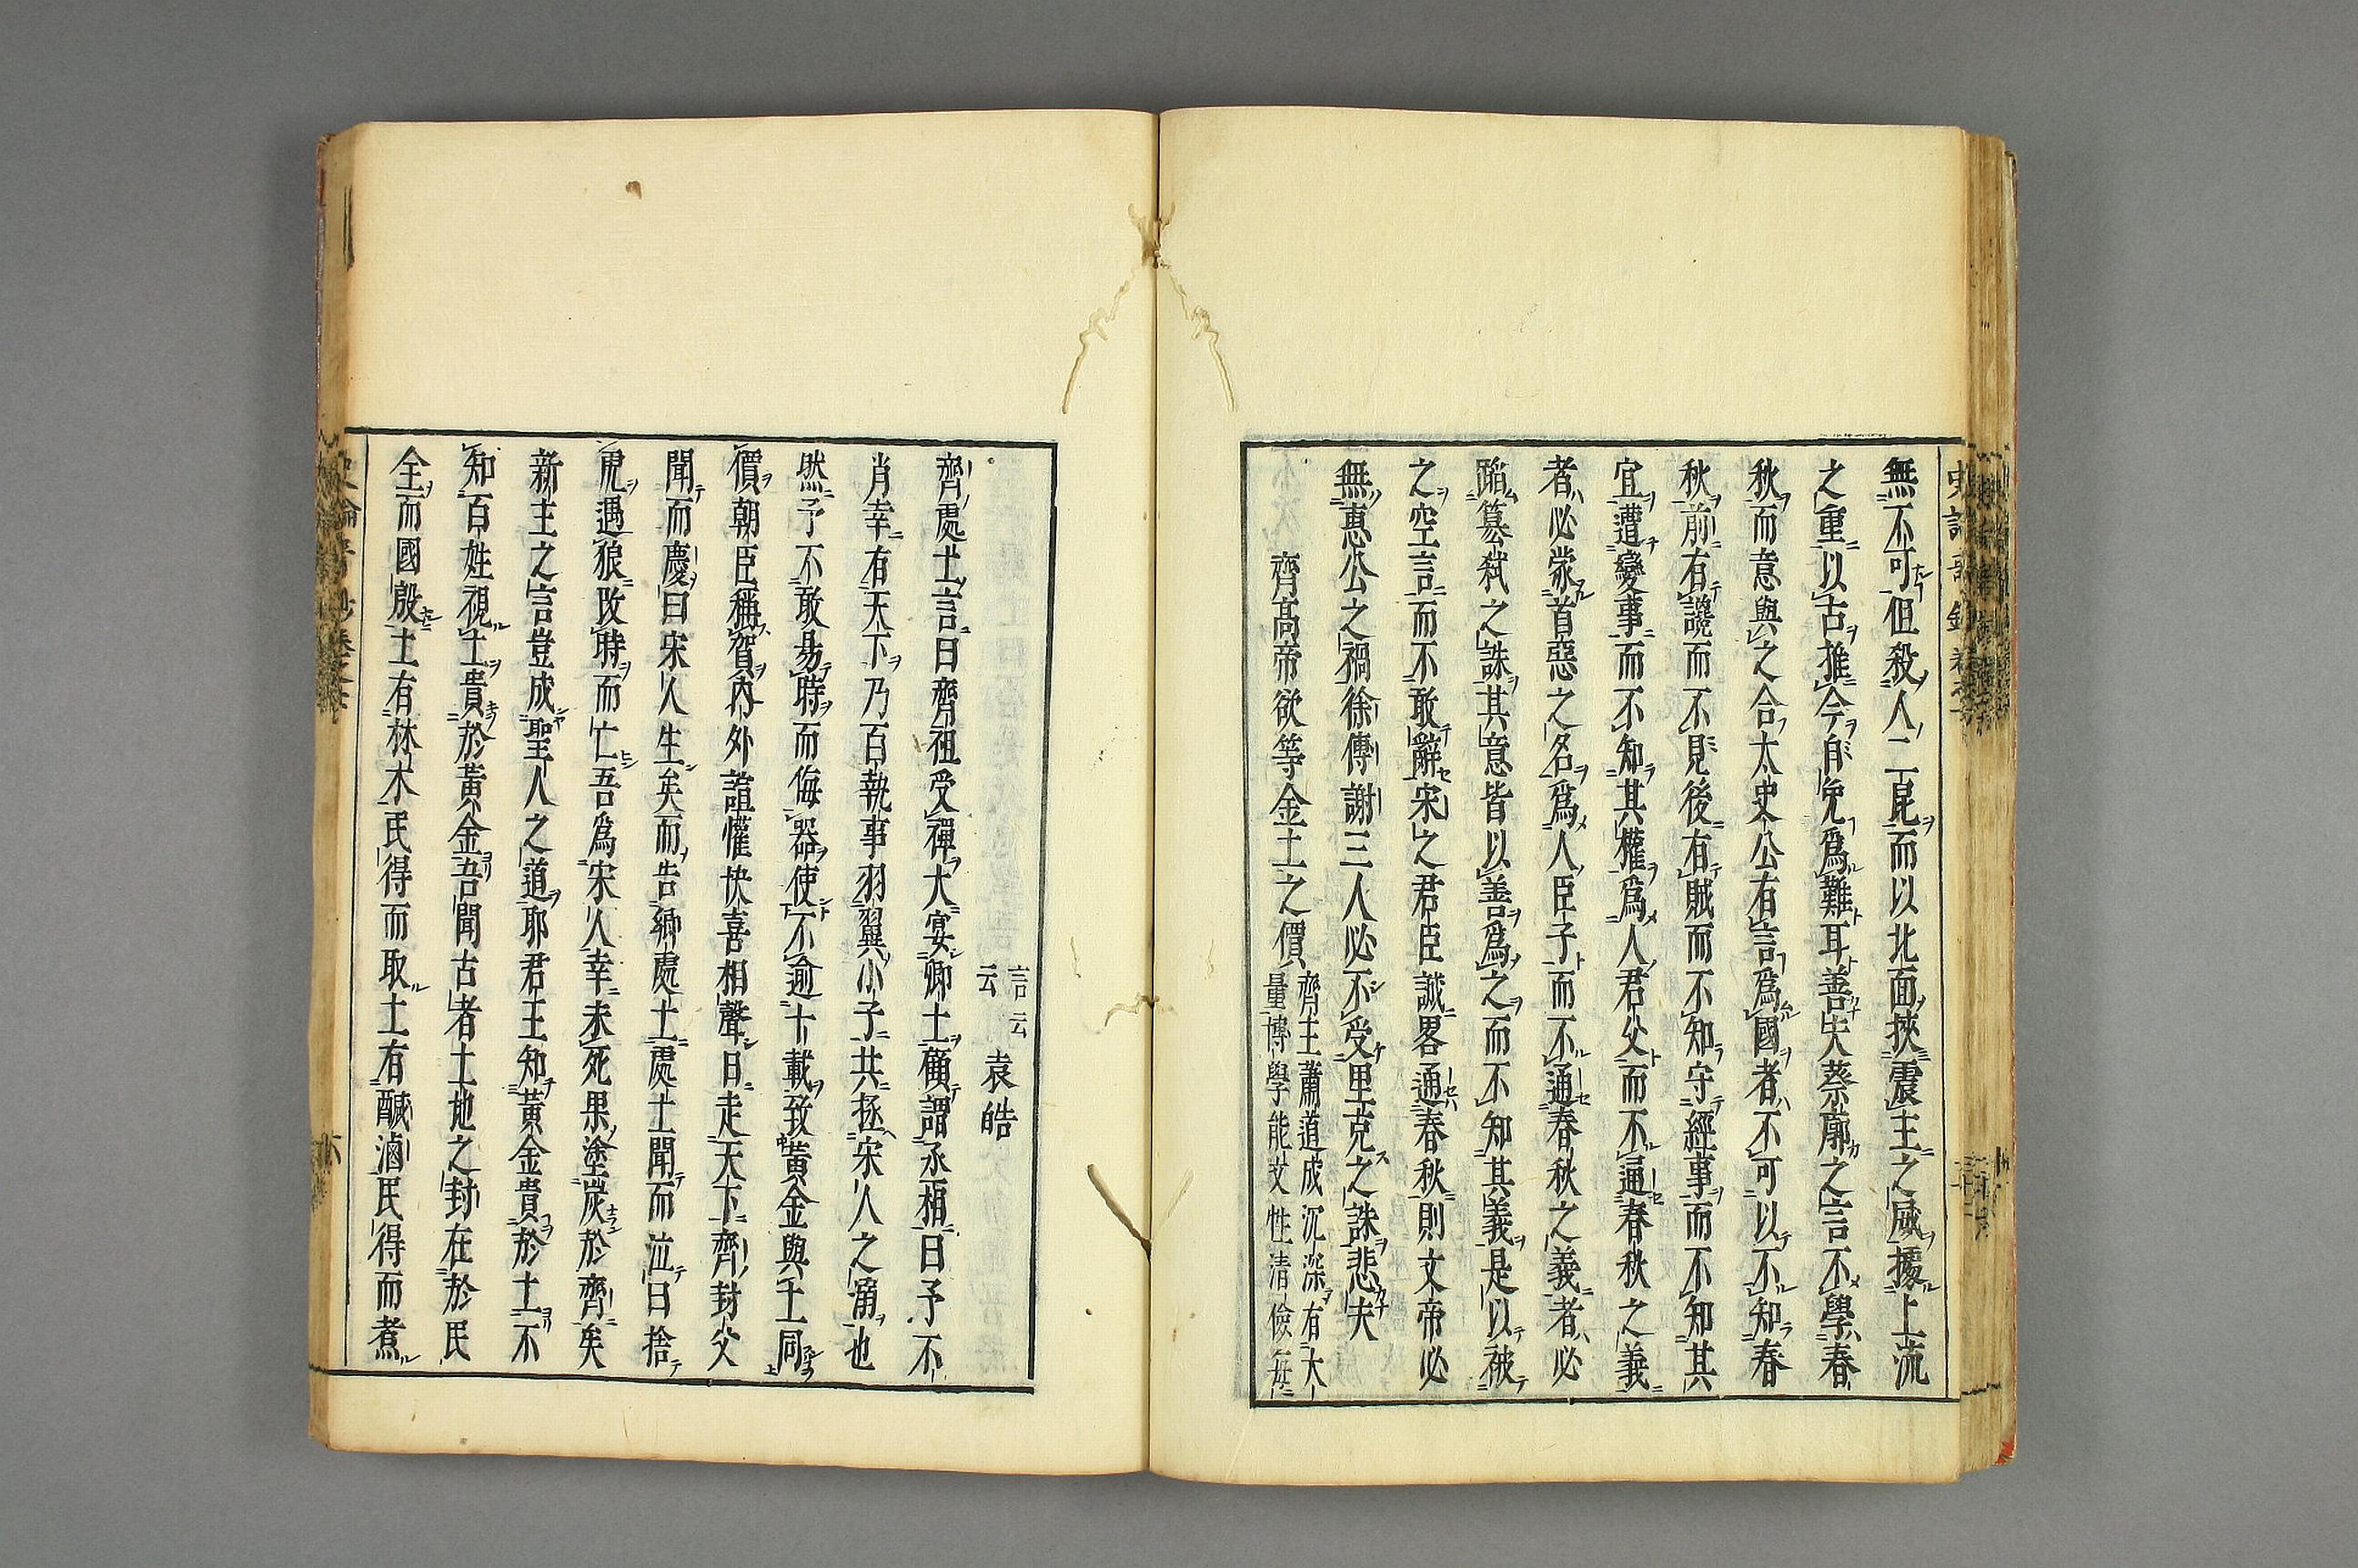 無不可但殺人二昆而以北面挾震主之威據上流
之重以古推今自免爲難耳善失蔡廓之言不學春
秋而意與之合太史公有言爲國者不可以不知春
秋前有讒而不見後有賊而不知守經事而不知其
宜遭變事而不知其權爲人君父而不通春秋之義
者必蒙首惡之名爲人臣子而不通春秋之義者必
陷篡弑之誅其意皆以善爲之而不知其義是以被
之空言而不敢辭宋之君臣誠畧通春秋則文帝必
無惠公之禍徐傳謝三人必不受里克之誅悲夫
齊高帝欲等金土之價
齊主蕭道成沉深有大
量博學能文性清儉每
言云
云
袁皓
齊處士言曰齊祖受禪大宴卿士顧謂丞相曰予不
肖幸有天下乃百執事羽翼小子共拯宋人之溺也
然予不敢易時而侮器使不逾十載致黃金與土同
價朝臣稱賀內外諠懽快喜相聲曰走天下齊封父
聞而慶曰宋人生矣而告鄉處士處士聞而泣曰捨
虎遇狼改時而亡吾爲宋人幸未死果塗炭於齊矣
新主之言豈成聖人之道耶君王知黃金貴於土不
知百姓視土貴於黃金吾聞古者土地之封在於民
全而國殷土有林木民得而取土有鹹滷民得而煮